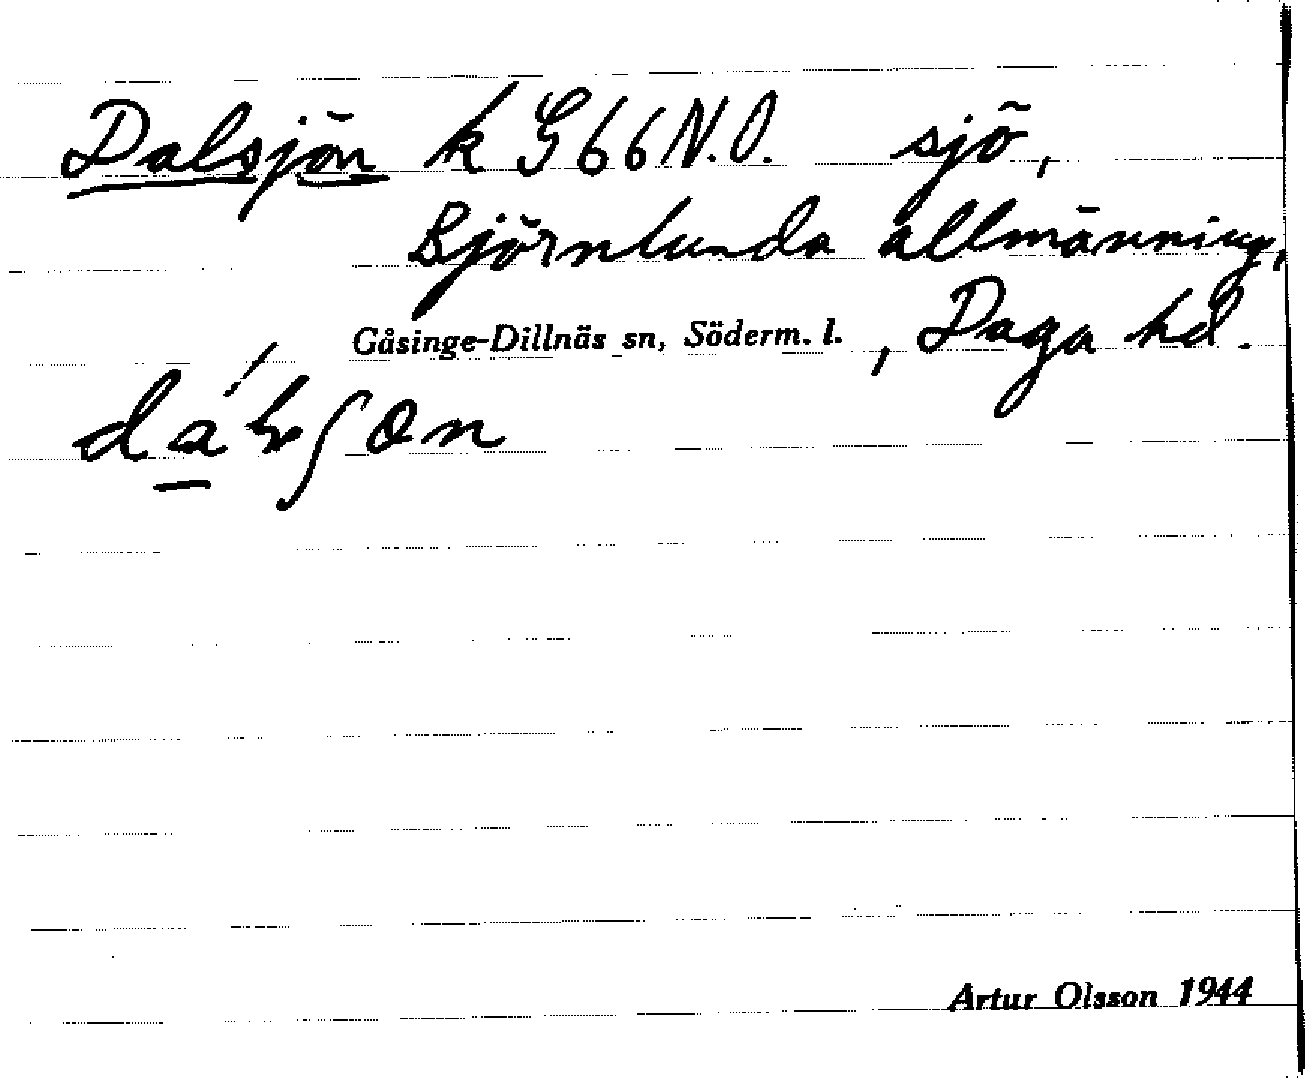 Dalsjön k G66 N.O. sjö,
Björnlunda allmänning,
Gåsinge-Dillnäs sn, Söderm. l., Daga hd.
Artur Olsson 1944